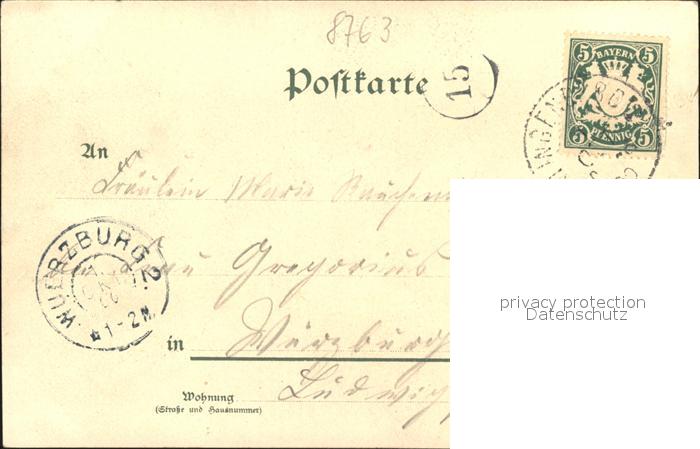 8763
Postkarte
15
5 BAYERN 5
5 PFENNIG 5
An
Fräulein Marie
Frau Gregorius
WUERZBURG 2.
1-2 N
in Würzburg
Ludwig
Wohnung
(Straße und Hausnummer)
privacy protection
Datenschutz